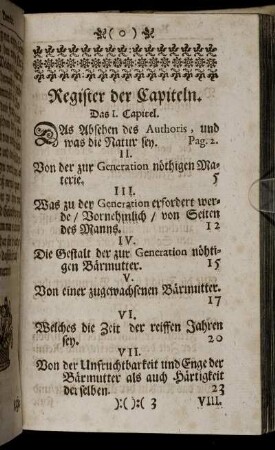 ( 0 )
Register der Capiteln.
Das I. Capitel.
DAs Absehen des Authoris, und
was die Natur sey. Pag. 2.
II.
Von der zur Generation nöthigen Ma-
terie. 5
III.
Was zu der Generation erfordert wer-
de / Vornehmlich / von Seiten
des Manns. 12
IV.
Die Gestalt der zur Generation nöhti-
gen Bärmutter. 15
V.
Von einer zugewachsenen Bärmutter.
17
VI.
Welches die Zeit der reiffen Jahren
sey. 20
VII.
Von der Unfruchtbarkeit und Enge der
Bärmutter als auch Härtigkeit
derselben. 23
):( ):( 3 VIII.